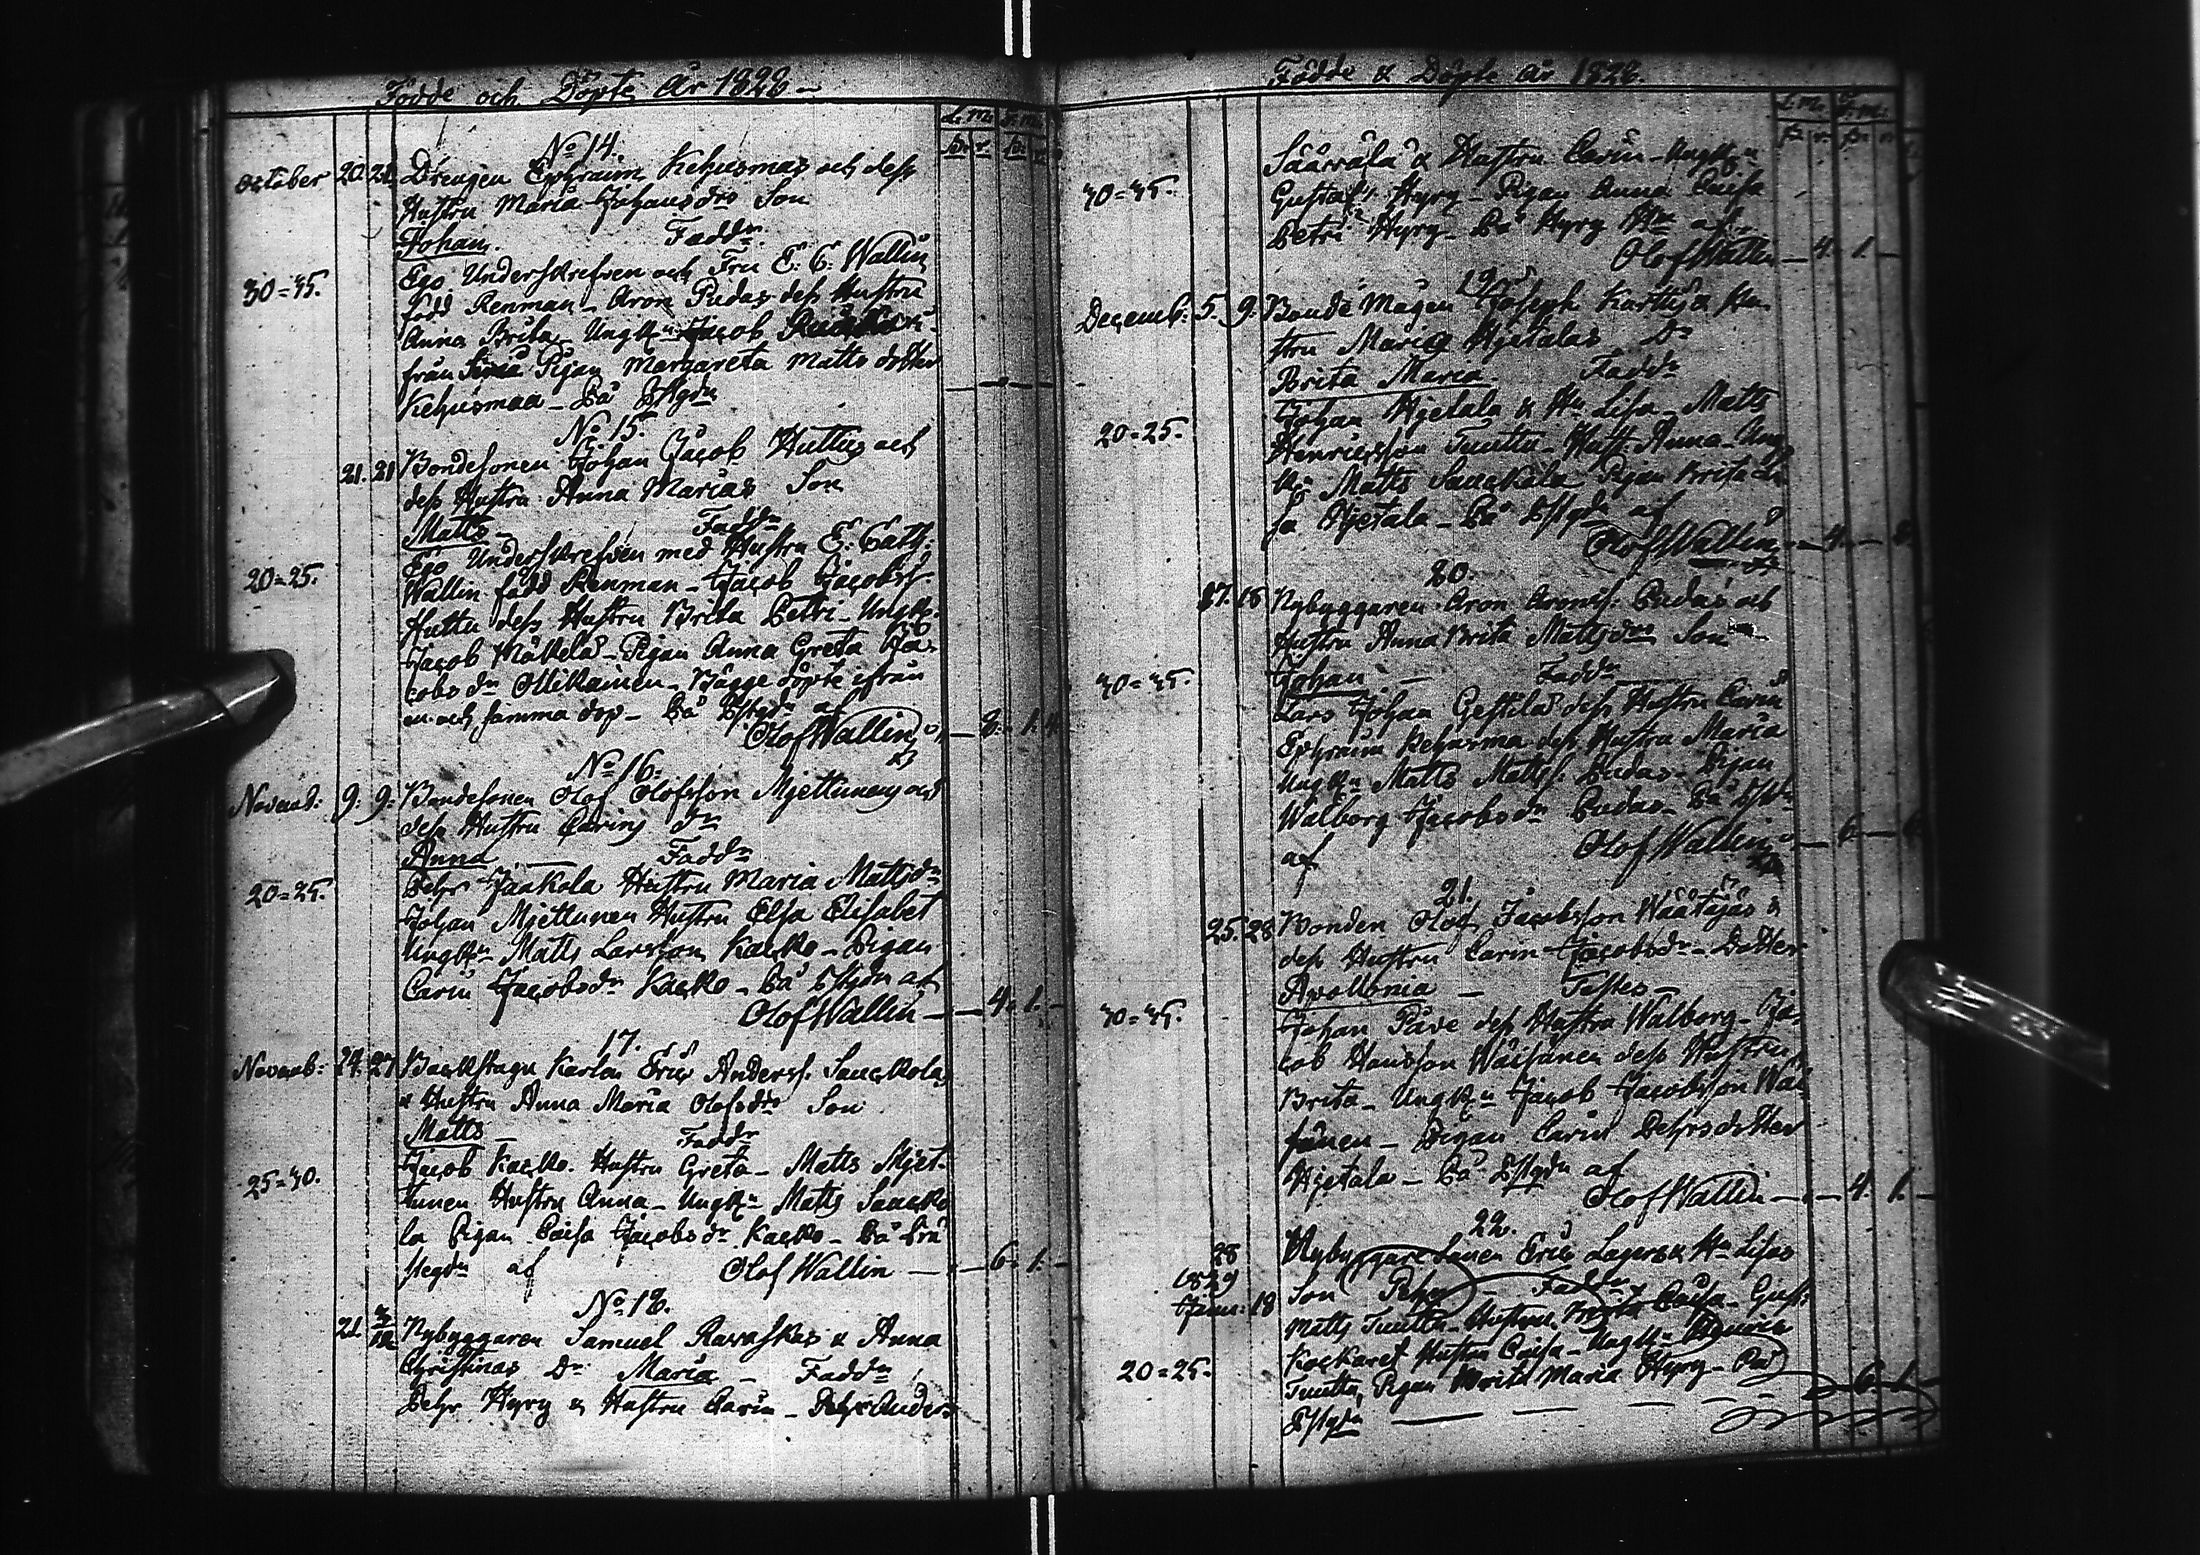 Födde och Döpte År 1828
No 14.
October 20. 21. Drengen Ephraim Kehusmas och dess
Hustru Maria Johansdrs Son
Johan. Faddr
Ego Underskrefven och Fru E: C: Wallin
30=35. född Renman - Aron Pudas dess Hustru
Anna Brita, Ungkn Jacob
från Pigan Margareta Matts dotter
Kehusmaa - På Bstgdn
No 15.
21. 21 Bondesonen Johan Jacob Huttus och
dess Hustru Anna Marias Son
Matts - Faddr
Ego Underskrefven med Hustru E: Cath:
20=25. Wallin född Renman - Jacob Jacobss.
Huttu dess Hustru Brita Petri - Ungkn.
Jacob Mäkelä - Pigan Anna Greta Ja-
cobs dr Ollikainen - Bägge döpte ifrån
en och samma dop - På Bstgdn af
Olof Wallin - 8. 1. 4.
No 16.
Novemb: 9. 9. Bondesonen Olof Olofsson Mjettunens och
dess Hustru Carins dr
Anna - Faddr
20=25. Pehr Jaakola Hustru Maria Mattsdr
Johan Mjettunen Hustru Elsa Elisabet
Ungkn Matts Larsson Kacko - Pigan
Carin Jacobsdr Kacko - På Bstgdn af
Olof Wallin - 4. 1. -
17.
Novemb: 24. 27 Backstugu Karlen Eric Anderss. Sauckolas
& Hustru Anna Maria Olofsdrs Son
Matts - Faddr
Jacob Kacko. Hustru Greta - Matts Mjet-
25=30. tunen Hustru Anna - Ungkn Matts Saucko
la Pigan Caisa Jacobs dr Kacko - På Brä
stegdn af Olof Wallin - 6. 1. -
No 18.
21 3/12 Nybyggaren Samuel Rawaskas & Anna
Christinas Dr Maria - Faddr
Pehr Hyry & Hustru Carin - Pehr Anders
Födde & Döpte år 1828.
Säärälä & Hustru Carin - Ungkn
30=35. Gustaf Hyry - Pigan Anna Caisa
Petri Hyry - På Hyry Hn af
Olof Wallin - 4. 1. -
19
Decemb: 5. 9. Bonde Mågen Joseph Karttus & Hu-
stru Maria Hjetalas Dr
Brita Maria Faddr
20=25. Johan Hjetala & Hn Lisa - Matts
Henricsson Tuuttu - Hust. Anna - Ung
kn Matts Sauckola Pigan Brita Li-
sa Hjetala - På Bstgdn af
Olof Wallin
20.
17. 18 Nybyggaren Aron Aronss: Pudas och
Hustru Anna Brita Mattsdrs Son
30=35. Johan - Faddr
Lars Johan Gestilä dess Hustru Carin
Ephraim Kehusma dess Hustru Maria
Ungkn Matts Mattss. Pudas - Pigan
Walborg Jacobsdr Pudas - På
af Olof Wallin - 6
21.
25. 28 Bonden Olof Jacobsson Wäätäjäs &
dess Hustru Carin Jacobsdr - Dotter
Apollonia - Testes -
30=35. Johan Påve dess Hustru Walborg - Ja-
cob Hansson Waisänen dess Hustru
Brita - Ungkn Jacob Jacobsson Wai
sänen - Pigan Carin Pehrsdotter
Hjetala - På Bstgdn af
Olof Wallin - 4. 1. -
22.
28 Nybyggare Sonen Eric Lagers & Hn Lisas
1829 Son Pehr - Faddr
Janu: 18 Matts Tuuttu - Hustru Brita Caisa - Gust:
Kockaret Hustru Caisa - Ungkn
20=25. Tuuttu, Pigan Brita Maria Hyry - På - 6. 1. -
Bstgdn